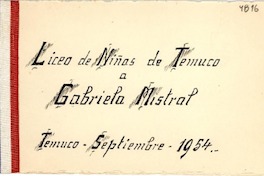 4816
Liceo de Niñas de Temuco
a
Gabriela Mistral
Temuco - Septiembre - 1954.-